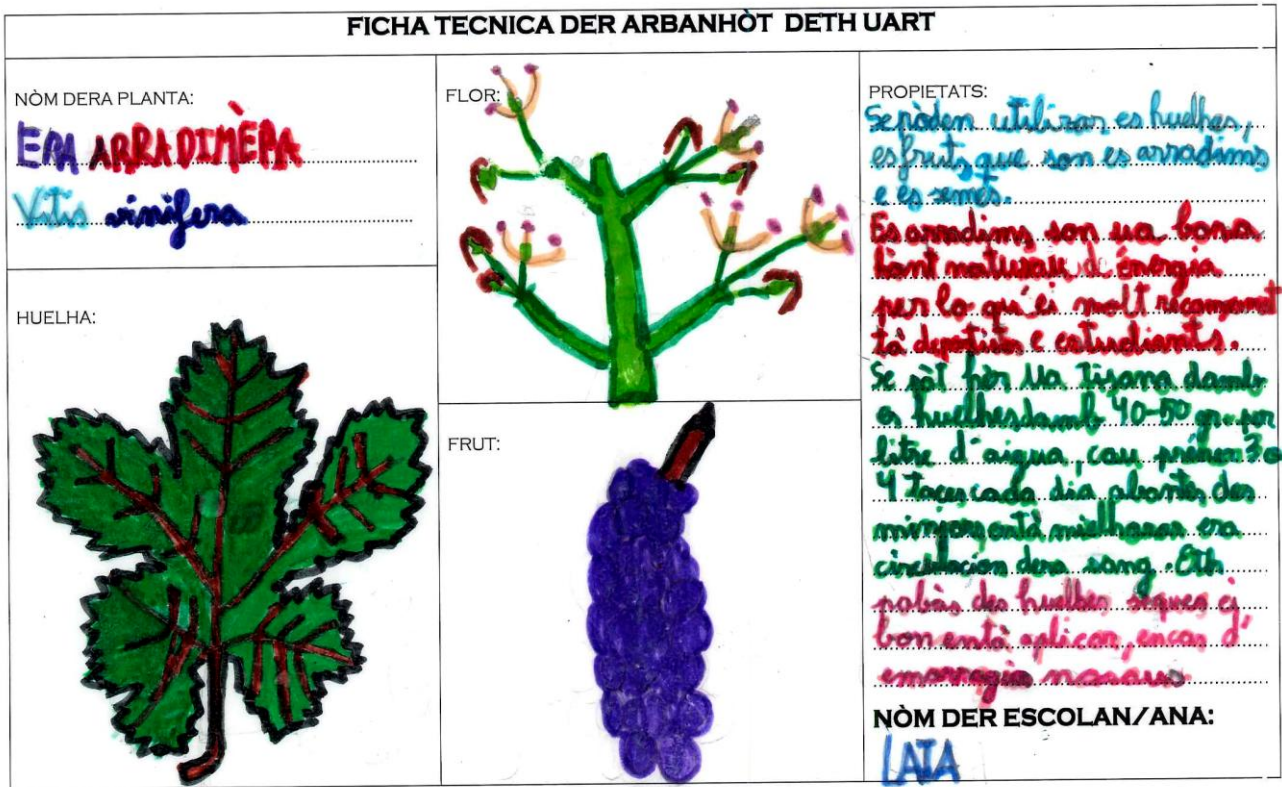 FICHA TECNICA DER ARBANHÒT DETH UART
NÒM DERA PLANTA:
ERA ARRADIMÈRA
Vitis vinifera
HUELHA:
FLOR:
FRUT:
PROPIETATS:
Se pòden utilizar es huelhes,
es fruts que son es arradims
e es semes.
Es arradims son ua bona
hònt naturau d'énergia
per lo qu'ei molt recomanat
tà depotists e estudiants.
Se pòt hèr ua tisana damb
es huelhes damb 40-50 gr. per
litre d'aigua, cau préner 3 o
4 taces cada dia abantes des
minjars entà mielhorar era
circulacion dera sang. Eth
polbàs des huelhes seques ei
bon entà aplicar, en cas d'
emorragia nasau
NÒM DER ESCOLAN/ANA:
LAIA